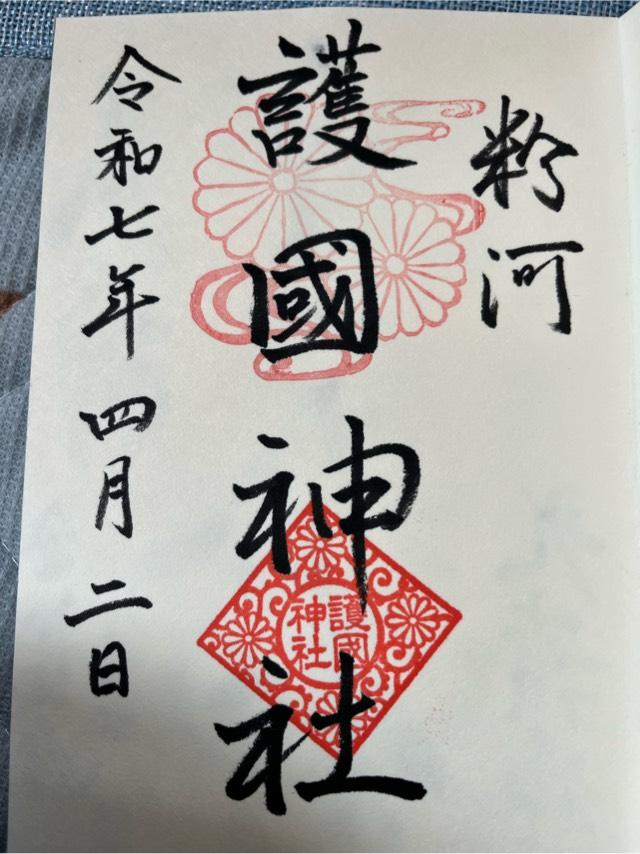 粉河
護國神社
令和七年四月二日
護國
神社